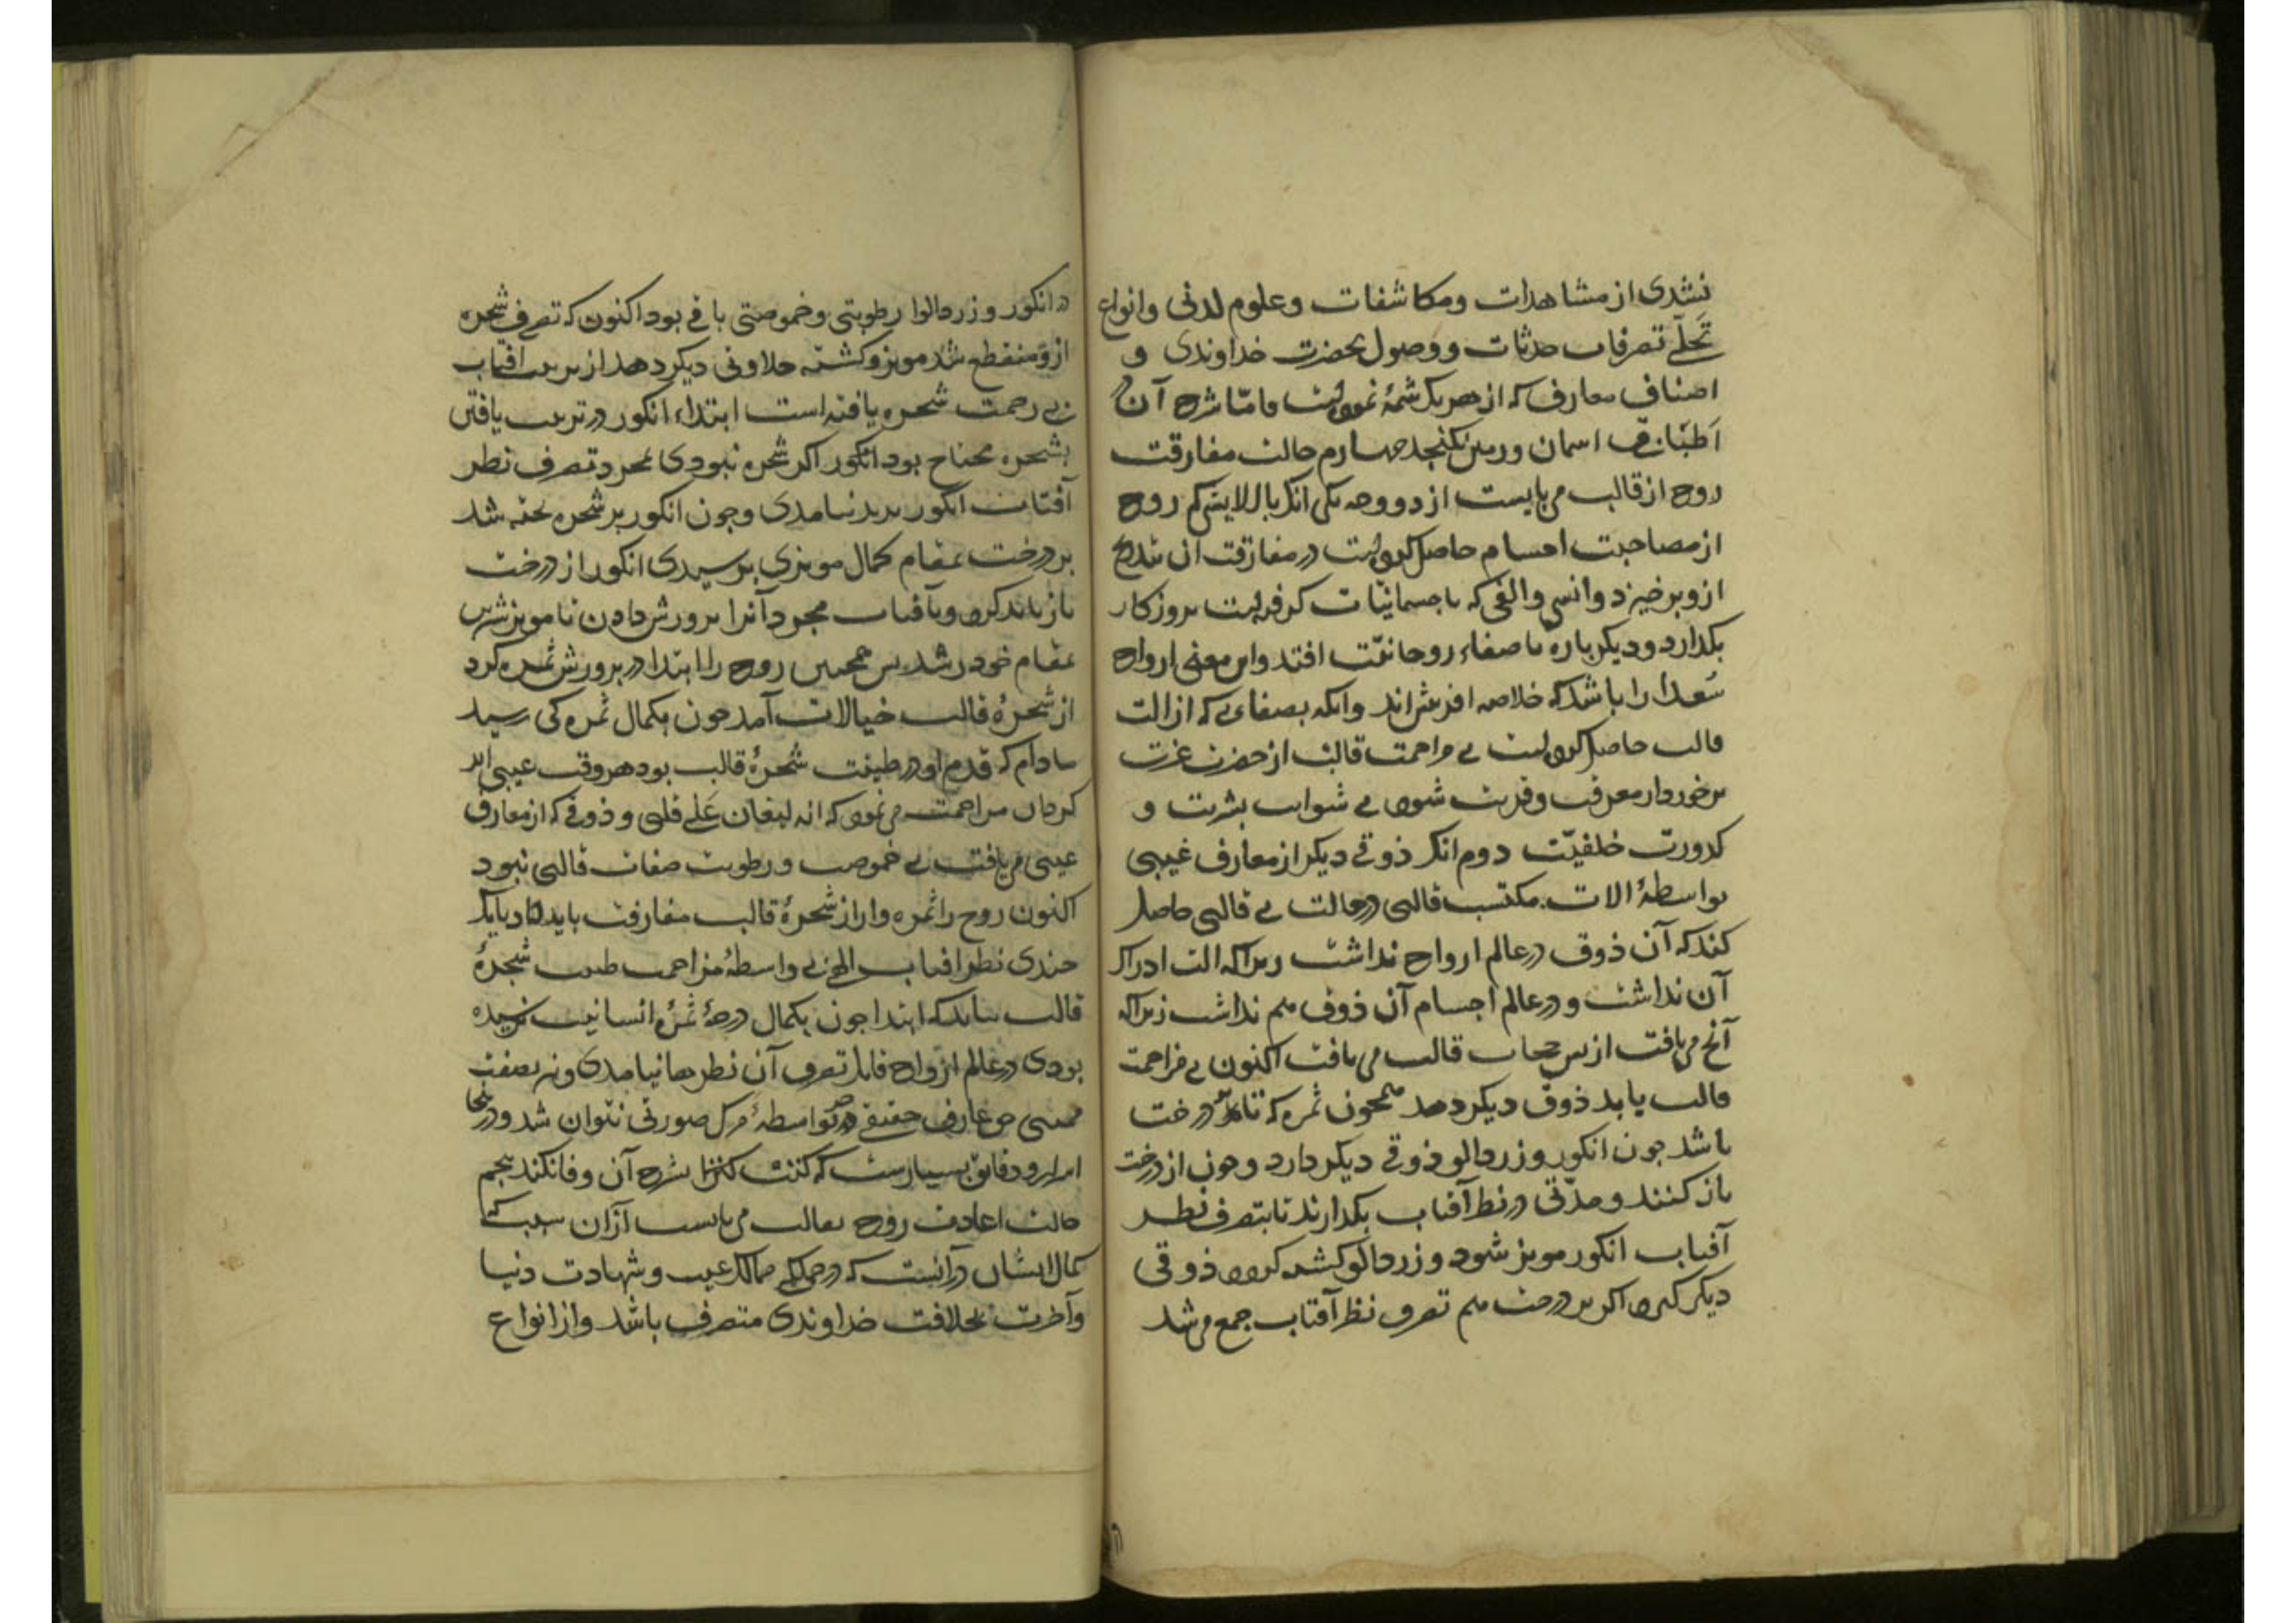 نشدی از مشاهدات ومکاشفات وعلوم لدنی وانواع
تَجلّے تصرفات ووصول بحضرت خداوندی و
اصناف معارف که از هریک شمۀ نموده است واما شرح آن در
اطباق اسمان وزمین نکنجد چهارم حالت مفارقت
روح از قالب می بایست از دو وجه یکی انک با الایشی که روح
از مصاحبت اجسام حاصل کرده است در مفارقت ان بتدریج
ازو برخیزد وانسی والفی که با جسمانیّات کرفته است بروزکار
بکدارد ودیکر باره با صفاء روحانیّت افتد واین معنی ارواح
سُعدا را باشد که خلاصه افرینش اند وانکه بصفاءی که از الت
قالب حاصل کرده است بی مزاحمت قالب از حضرت عزت
برخوردار معرفت وقربت شود بی شوایب بشریت و
کدورت خلقیّت دوم انک ذوقی دیکر از معارف غیبی
بواسطۀ الات مکتسب قالبی در حالت بی قالبی حاصل
کند که آن ذوق در عالم ارواح نداشت زیراکه الت ادراک
آن نداشت و در عالم اجسام آن ذوق هم نداشت زیراکه
آنچ می یافت از پس حجاب قالب می یافت اکنون بی مزاحمت
قالب یابد ذوق دیکر دهد همچون ثمره که تا بر درخت
باشد چون انکور وزردالو ذوقی دیکر دارد وچون از درخت
باز کنند ومدّتی در نظر آفتاب بکدارند تا بتصرف نظر
آفتاب انکور مویز شود وزردالو کشته کردد ذوقی
دیکر کیرد اکر بر درخت هم تصرف نظر آفتاب جمع می شد
در انکور وزردالو رطوبتی وخموصتی باقی بود اکنون که تصرف شجره
ازو منقطع شد مویز وکشته حلاوتی دیکر دهد از تربیت افتاب
بی زحمت شجره یافته است ابتداء انکور در تربیت یافتن
بشجره محتاج بود انکور اکر شجره نبودی بمجرد تصرف نظر
آفتاب انکور پدید نیامدی وچون انکور بر شجره پخته شد
بر درخت بمقام کمال مویزی نرسیدی انکور از درخت
باز باید کردو وبآفتاب مجرد آنرا پرورش دادن تا مویز شیرین
بمقام خود رشد پس همچنین روح را ابتدا در پرورش ثمره کرد
از شجرۀ قالب خیالات آمد چون بکمال ثمره کی رسید
مادام که قدم او در طینت شجرۀ قالب بود هر وقت عیبی ابد
کردان مزاحمت می نمود که انه لیغان عَلے قلبی و ذوقی که از معارف
غیبی می یافت بی خموصت ورطوبت صفات قالبی نبود
اکنون روح را ثمره وار از شجرۀ قالب مفارقت باید داد تا یک
چندی نظر افتاب الهی بی واسطۀ مزاحمت طینت شجرۀ
قالب بیابد که ابتدا چون بکمال درجۀ ثمرۀ انسانیت نرسیده
بودی در عالم ارواح قابل تصرف آن نظر هم نیامدی ونه بصفت
عارف حقیقی بواسطۀ صورتی نتوان شد ودرینجا
اسرار ودقایق بسیارست که کنت کنزا شرح آن وفا نکند پنجم
حالت اعادت روح بقالب می بایست آزان سبب که
کمال ایشان در آنست که در مملکتی ممالک غیب وشهادت دنیا
وآخرت بخلافت خداوندی متصرف باشد واز انواع